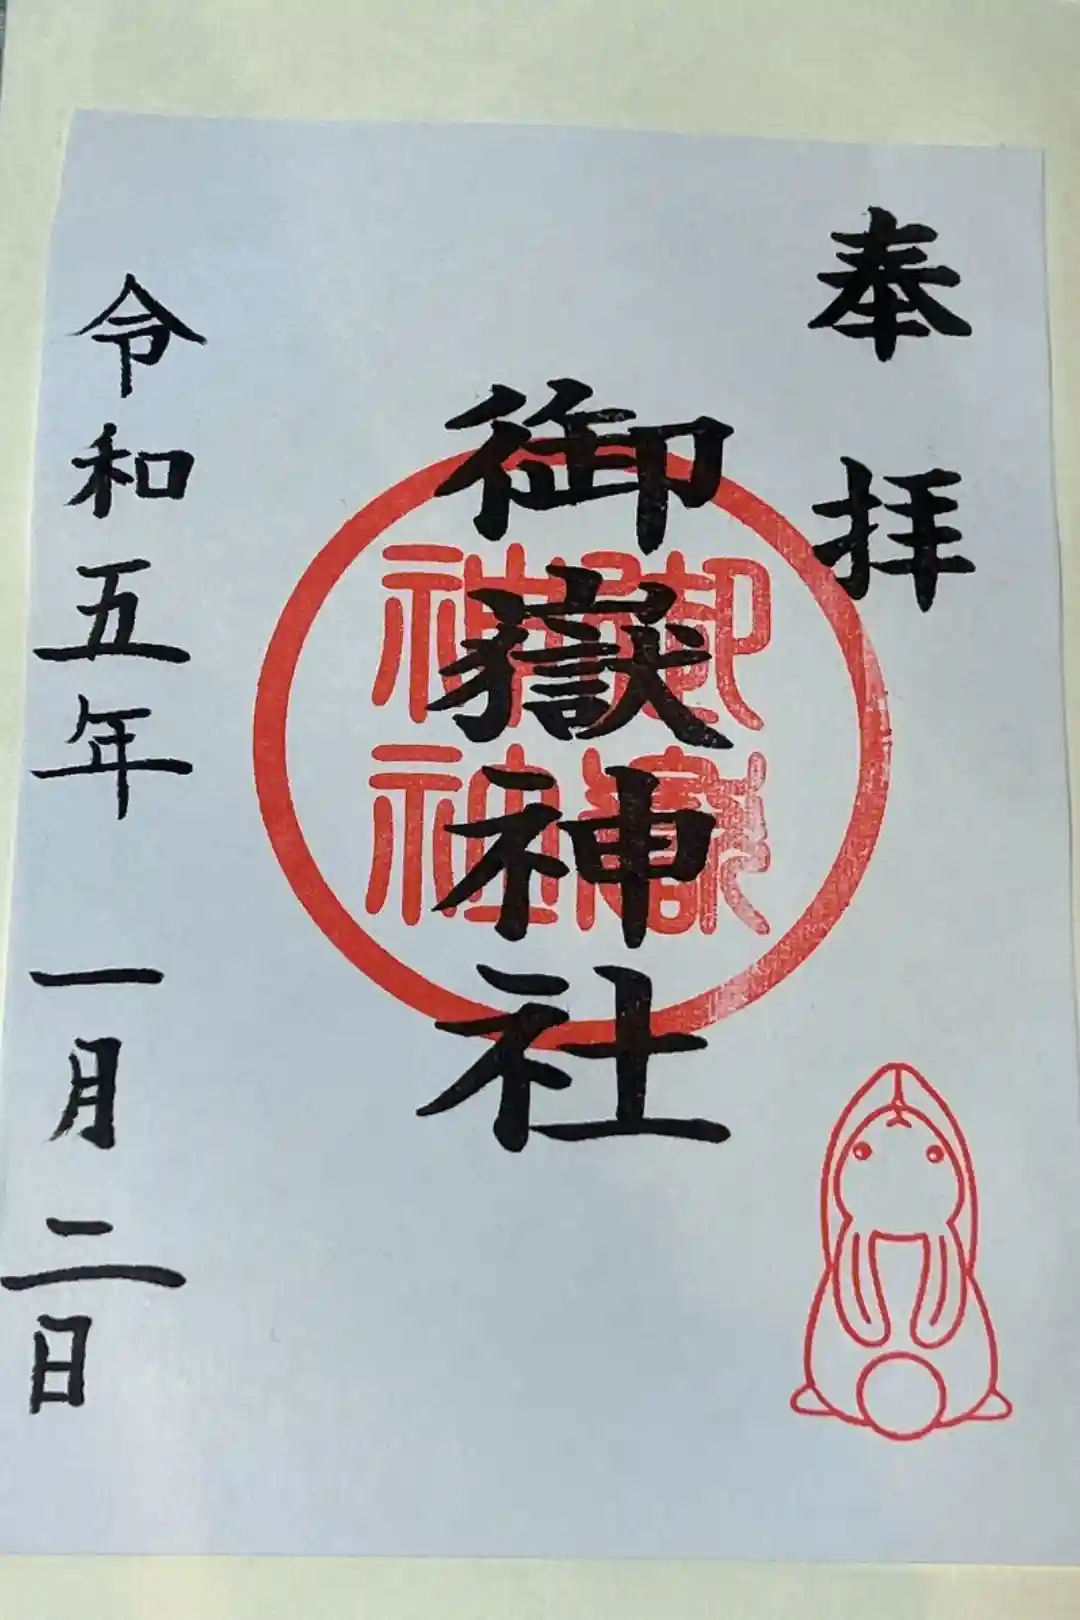 奉拝
御嶽神社
御嶽神社
令和五年一月二日